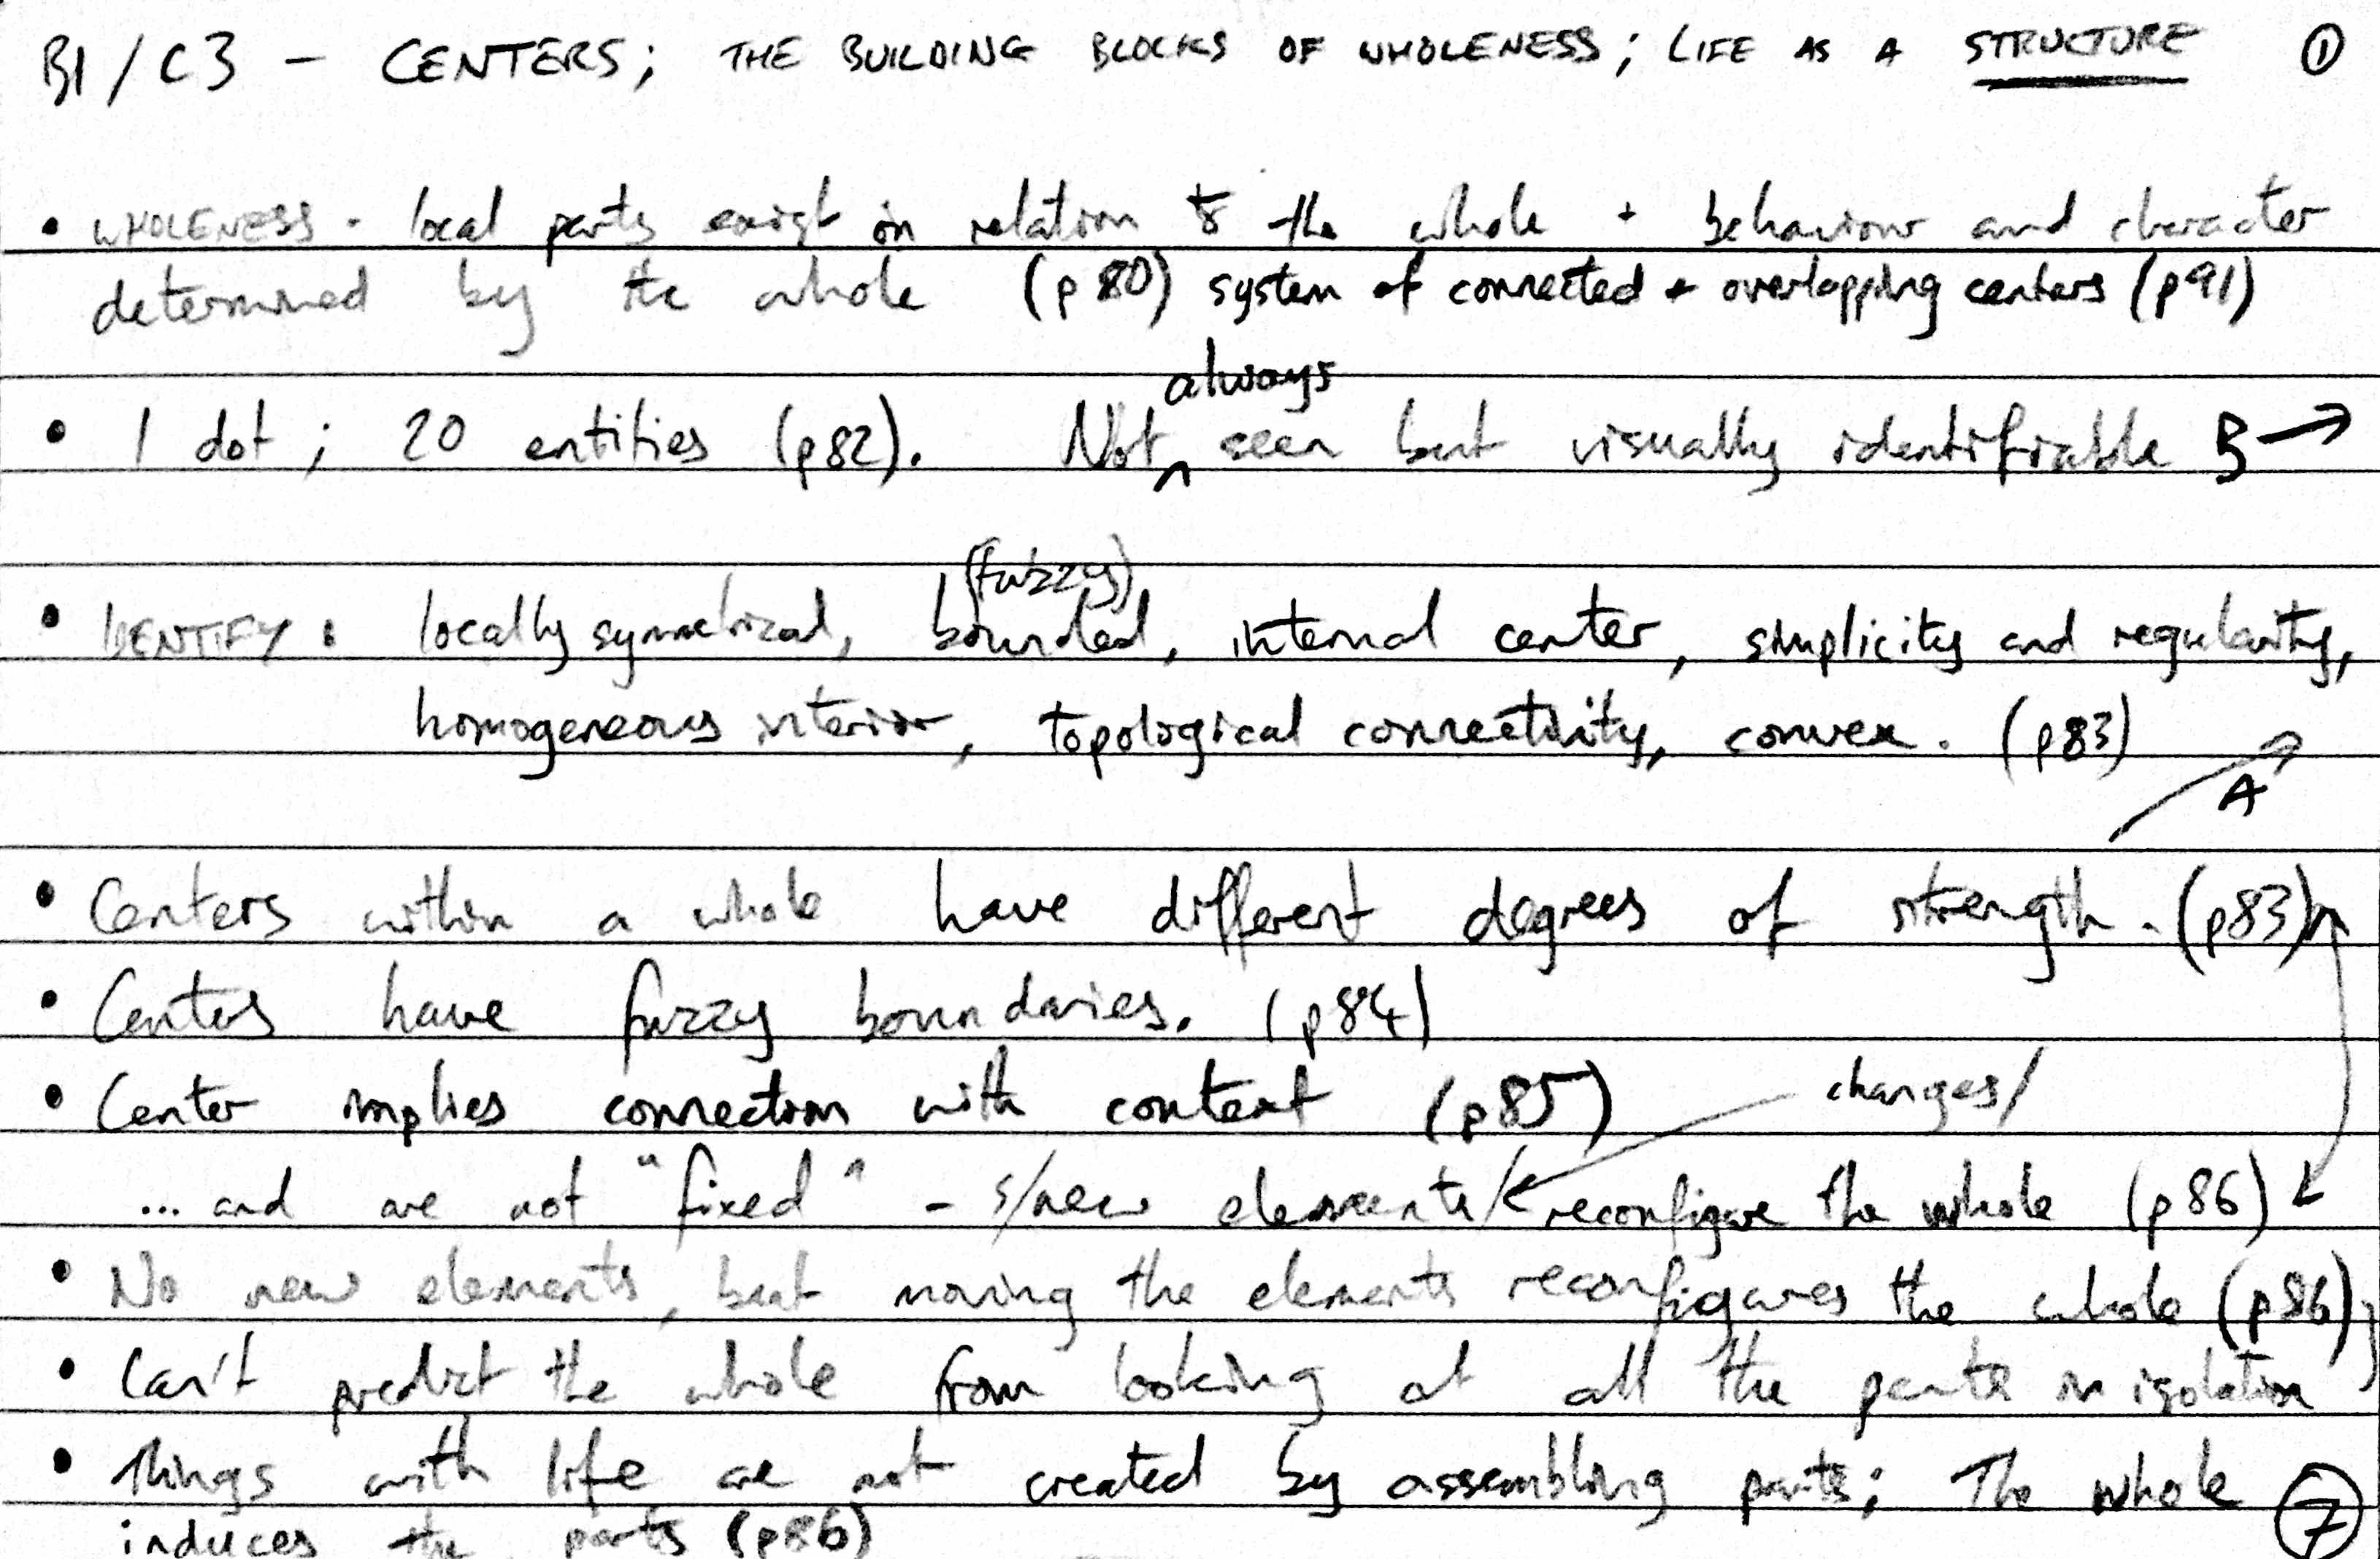 B1/C3 – CENTERS; THE BUILDING BLOCKS OF WHOLENESS; LIFE AS A STRUCTURE ①
• WHOLENESS - local parts exist in relation to the whole + behaviour and character
determined by the whole (p80) system of connected + overlapping centers (p91)
always
• 1 dot; 20 entities (p82). Not ^ seen but visually identifiable B →
(fuzzy)
• IDENTIFY: locally symmetrical, bounded, internal center, simplicity and regularity,
homogeneous interior, topological connectivity, convex. (p83)
A
• Centers within a whole have different degrees of strength. (p83)
• Centers have fuzzy boundaries. (p84)
• Center implies connection with context (p85) changes/
... and are not "fixed" - s/new elements/ reconfigure the whole (p86)
• No new elements, but moving the elements reconfigures the whole (p86)
• Can't predict the whole from looking at all the parts in isolation
• Things with life are not created by assembling parts; The whole ⑦
induces the parts (p86)